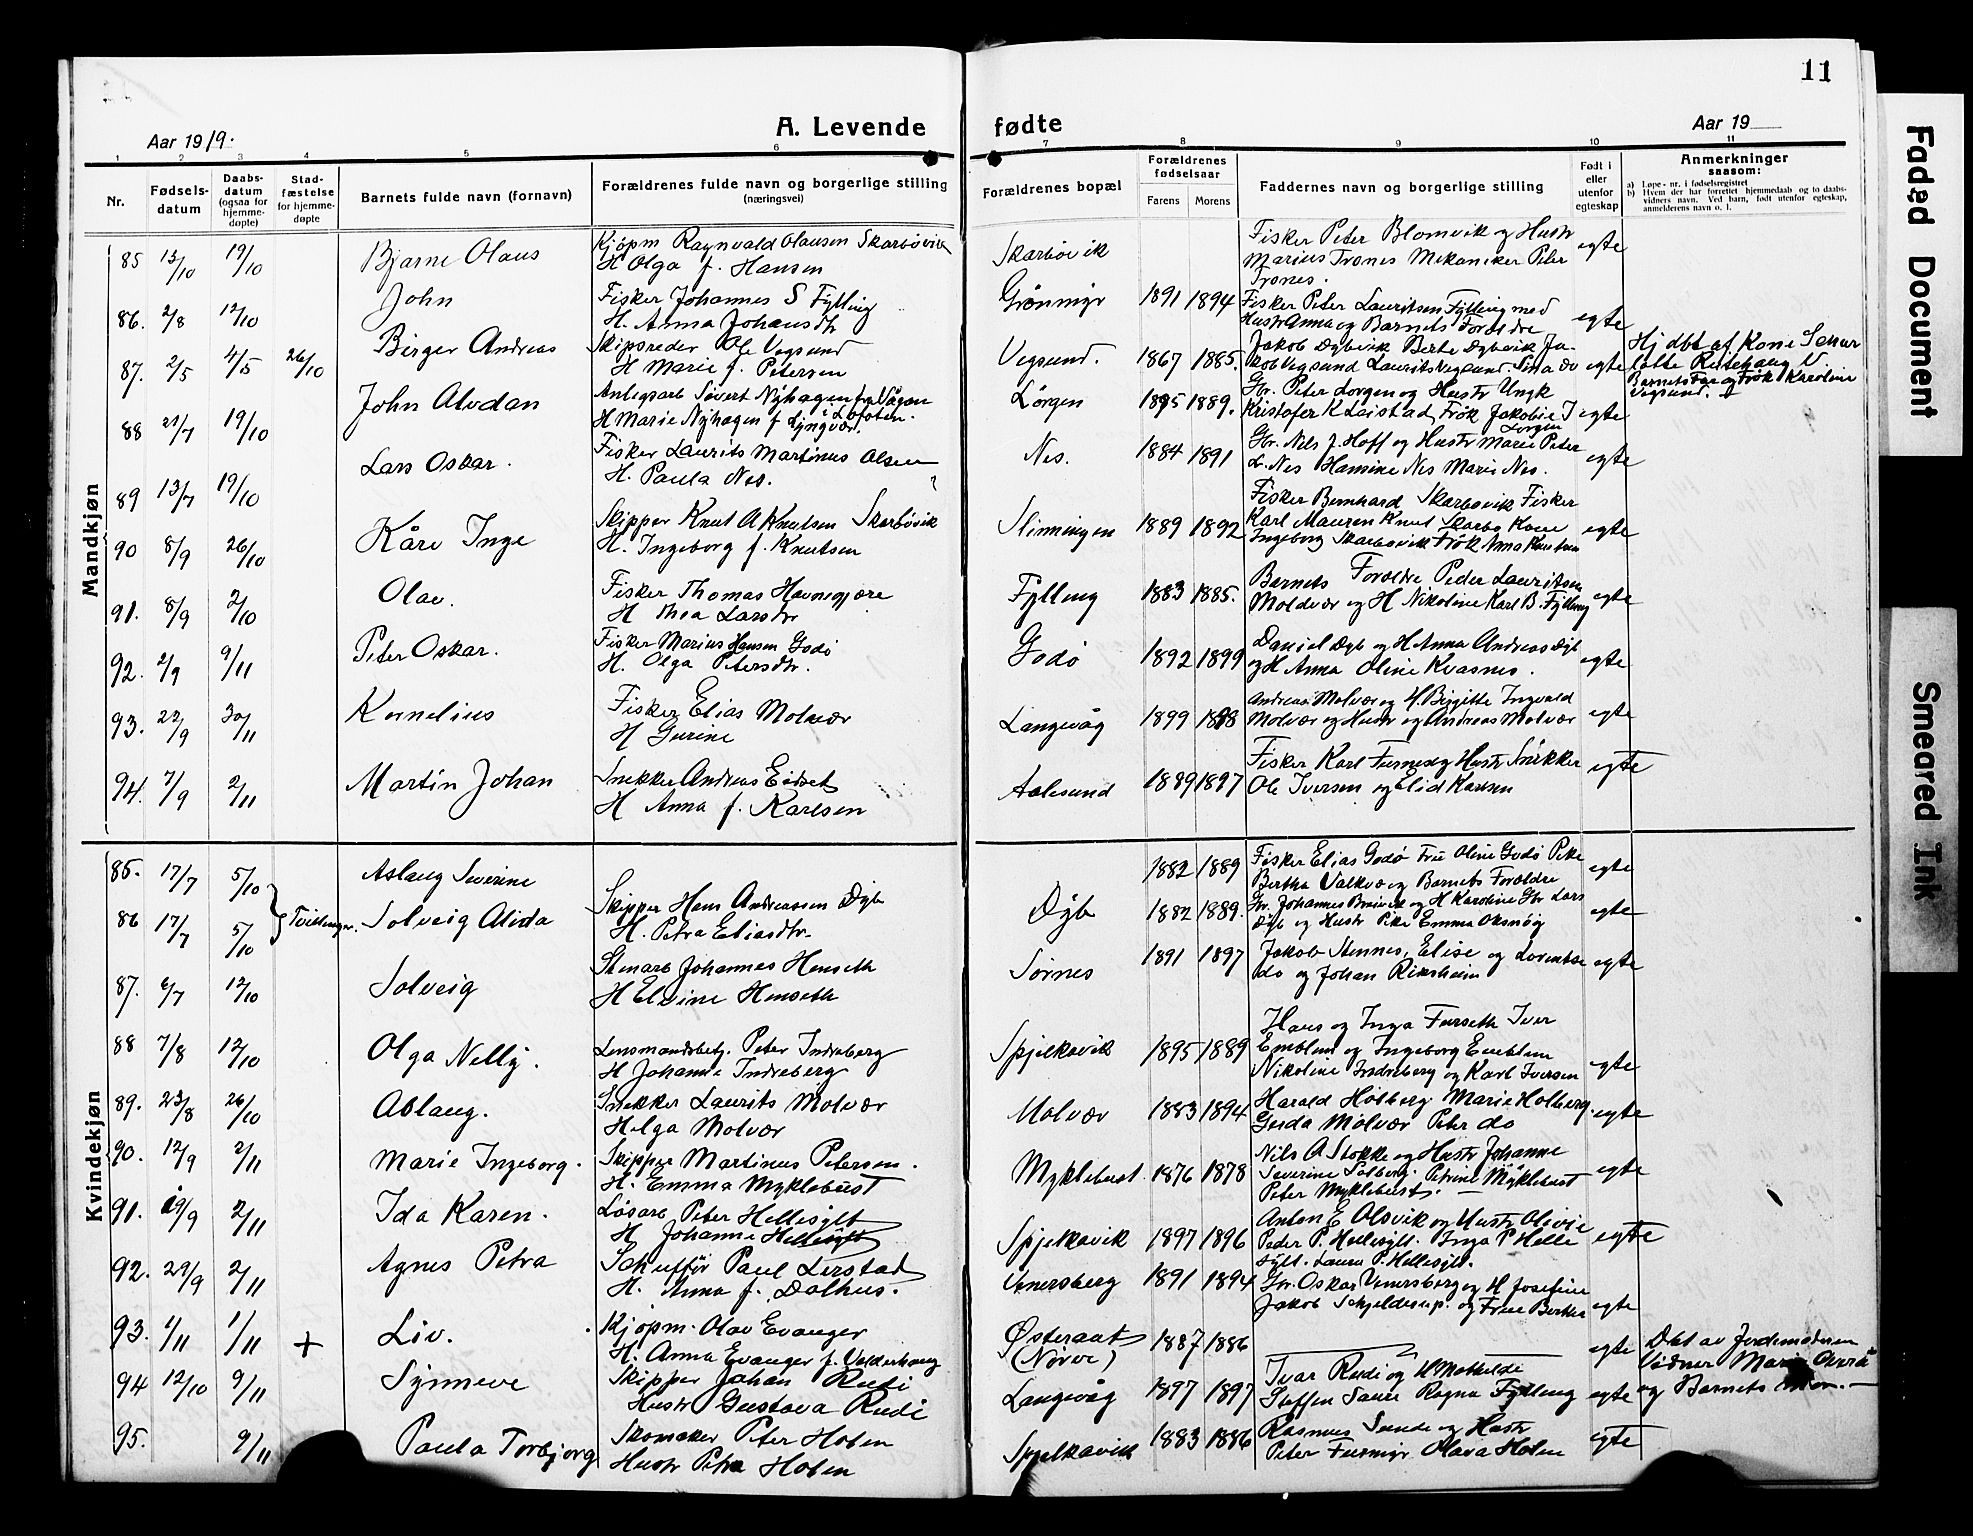 11
Aar 1919.
A. Levende fødte
Aar 19
1 2 3 4 5 6 7 8 9 10 11
Nr.
Fødsels-
datum
Daabs-
datum
(ogsaa for
hjemme-
døpte)
Stad-
fæstelse
for hjemme-
døpte
Barnets fulde navn (fornavn)
Forældrenes fulde navn og borgerlige stilling
(næringsvei)
Forældrenes bopæl
Forældrenes
fødselsaar
Farens Morens
Faddernes navn og borgerlige stilling
Født i
eller
utenfor
egteskap
Anmerkninger
saasom:
a) Løpe-nr. i fødselsregistret
b) Hvem der har forrettet hjemmedaab og to daabs-
vidners navn. Ved barn, født utenfor egteskap,
anmelderens navn o. l.
Mandkjøn
85 13/10 19/10 Bjarne Olaus Kjøpm Ragnvald Olausen Skarbøvik
H Olga f. Hansen
Skarbøvik Fisker Peter Blomvik og Hustr
Marius Trones Mekaniker Peter
Trones. egte
86. 2/8 12/10 John Fisker Johannes S Fylling
H. Anna Johansdtr
Grønmyr 1891 1894 Fisker Peter Lauritsen Fylling med
Hustr Anna og Barnets Forældre egte
87. 2/5 4/5 26/10 Birger Andreas Skipsreder Ole Vegsund
H Marie f. Petersen
Vegsund. 1867 1885. Jakob Dybvik Berte Dybvik Ja-
kob Vegsund Laurits Vegsund. Sina do egte
Hj dbt af Kone
Barnets Far og Frøk Karoline
Vegsund.
88 21/7 19/10 John Alvdan Anlegsarb Sivert Nyhagen fra Vågan
i Lofoten.
H Marie Nyhagen f Lyngvær
Lørgen 1895 1889. Gbr. Peter Lorgen og Hustr Ungk
Kristofer K Leistad Frøk Jakobie J
Lorgen egte
89 13/7 19/10 Lars Oskar. Fisker Laurits Martinus Olsen
H. Paula Nes.
Nes. 1884 1891 Gbr. Nels J. Hoff og Hustr Marie Peter
L. Nes Hansine Nes Marie Nes. egte
90 8/9 26/10 Kåre Inge Skipper Knut A Knutsen Skarbøvik
H. Ingeborg f. Knutsen
Slinningen 1889 1892 Fisker Bernhard Skarbøvik Fisker
Karl Mauren Knut Skarbø Kone
Ingeborg Skarbøvik Frøk Anna Knutsen egte
91. 8/9 2/10 Olav. Fisker Thomas Havnegjære
H Thea Larsdtr
Fylling 1883 1885. Barnets Forældre Peder Lauritsen
Moldvær og H Nikoline Karl B. Fylling egte
92. 2/9 9/11 Peter Oskar. Fisker Marius Hansen Godø
H. Olga Petersdtr.
Godø 1892 1899 Daniel Dyb og H Anna Andreas Dyb
og H Anna Oline Kvasnes. egte
93. 22/9 30/11 Kornelius Fisker Elias Molvær
H Gurine
Langevåg 1899 1898 Andreas Molvær og H. Birgitte Ingvald
Molvær og Hustr og Andreas Molvær egte
94. 7/9 2/11 Martin Johan Snekker Andreas Eidset
H Anna f. Karlsen
Aalesund 1889 1897 Fisker Karl Furnes og Hustr Snikker
Ole Iversen og Elid Karlsen egte
Kvindekjøn
85. 17/7 5/10 Aslaug Severine 1882 1889 Fisker Elias Godø Fru Oline Godø Pike
Bertha Valkvæ og Barnets Forældre egte
Tvillinger.
86 17/7 5/10 Solveig Alida Skipper Hans Andreassen Dyb
H. Petra Eliasdtr.
Dyb 1882 1889. Gbr. Johannes Breivik og H Karoline Gbr Lars
Dyb og Hustr Pike Emma Oksnøy egte
87. 6/7 12/10 Solveig Stenarb Johannes Henseth
H Elvine Henseth
Sørnes 1891 1897 Jakob Stennes, Elise og Lorentse
do og Johan Riksheim egte
88 7/8 12/10 Olga Nelly. Lensmandsbetj. Peter Indreberg
H Johanne Indreberg
Spjelkavik 1895 1889 Hans og Inga Furseth Iver
Emblem og Ingeborg Emblem
Nikoline Indreberg og Karl Iversen egte
89. 23/8 26/10 Aslaug. Snekker Laurits Molvær
Helga Molvær
Molvær 1883 1894 Harald Holberg Marie Holberg.
Gerda Molvær Peter do egte
90. 12/9 2/11 Marie Ingeborg. Skipper Martinus Petersen.
H. Emma Myklebust
Myklebust 1876 1878 Nils A Stokke og Hustr Johanne
Severine Solberg. Petrine Myklebust
Peter Myklebust. egte
91. 19/9 2/11 Ida Karen. Løsarb Peter Hellesylt
H Johanne Hellesylt
Spjelkavik 1897 1896 Anton E Olsvik og Hustr Olivie
Peder P. Hellesylt. Inga P Helle
sylt. Laura P. Hellesylt. egte
92. 29/9 2/11 Agnes Petra Schuffør Paul Lerstad
H. Anna f. Dalhus.
Unersberg 1891 1894 Gbr. Oskar Unersberg og H Josefine
Jakob Schjelderup. og Frue Bertha egte
93. 1/11 1/11 + Liv. Kjøpm. Olav Evanger
H. Anna Evanger f. Valderhaug
Østeraat
(Nørve) 1887 1886 egte
Døbt av Jordmoderen
Vidner
og Barnets Mor.
94 12/10 9/11 Synneve Skipper Johan Rudi
Hustr Gustava Rudi
Langevåg 1897 1897 Ivar Rudi og H Mathilde
Steffen Saure Ragna Fylling egte
95. 9/11 Paula Torbjørg Skomaker Peter Holen
Hustr Petra Holen
Spjelkavik 1883 1886 Rasmus Sunde og Hustr
Peter Furmyr Olava Holen egte
Faded Document
Smeared Ink